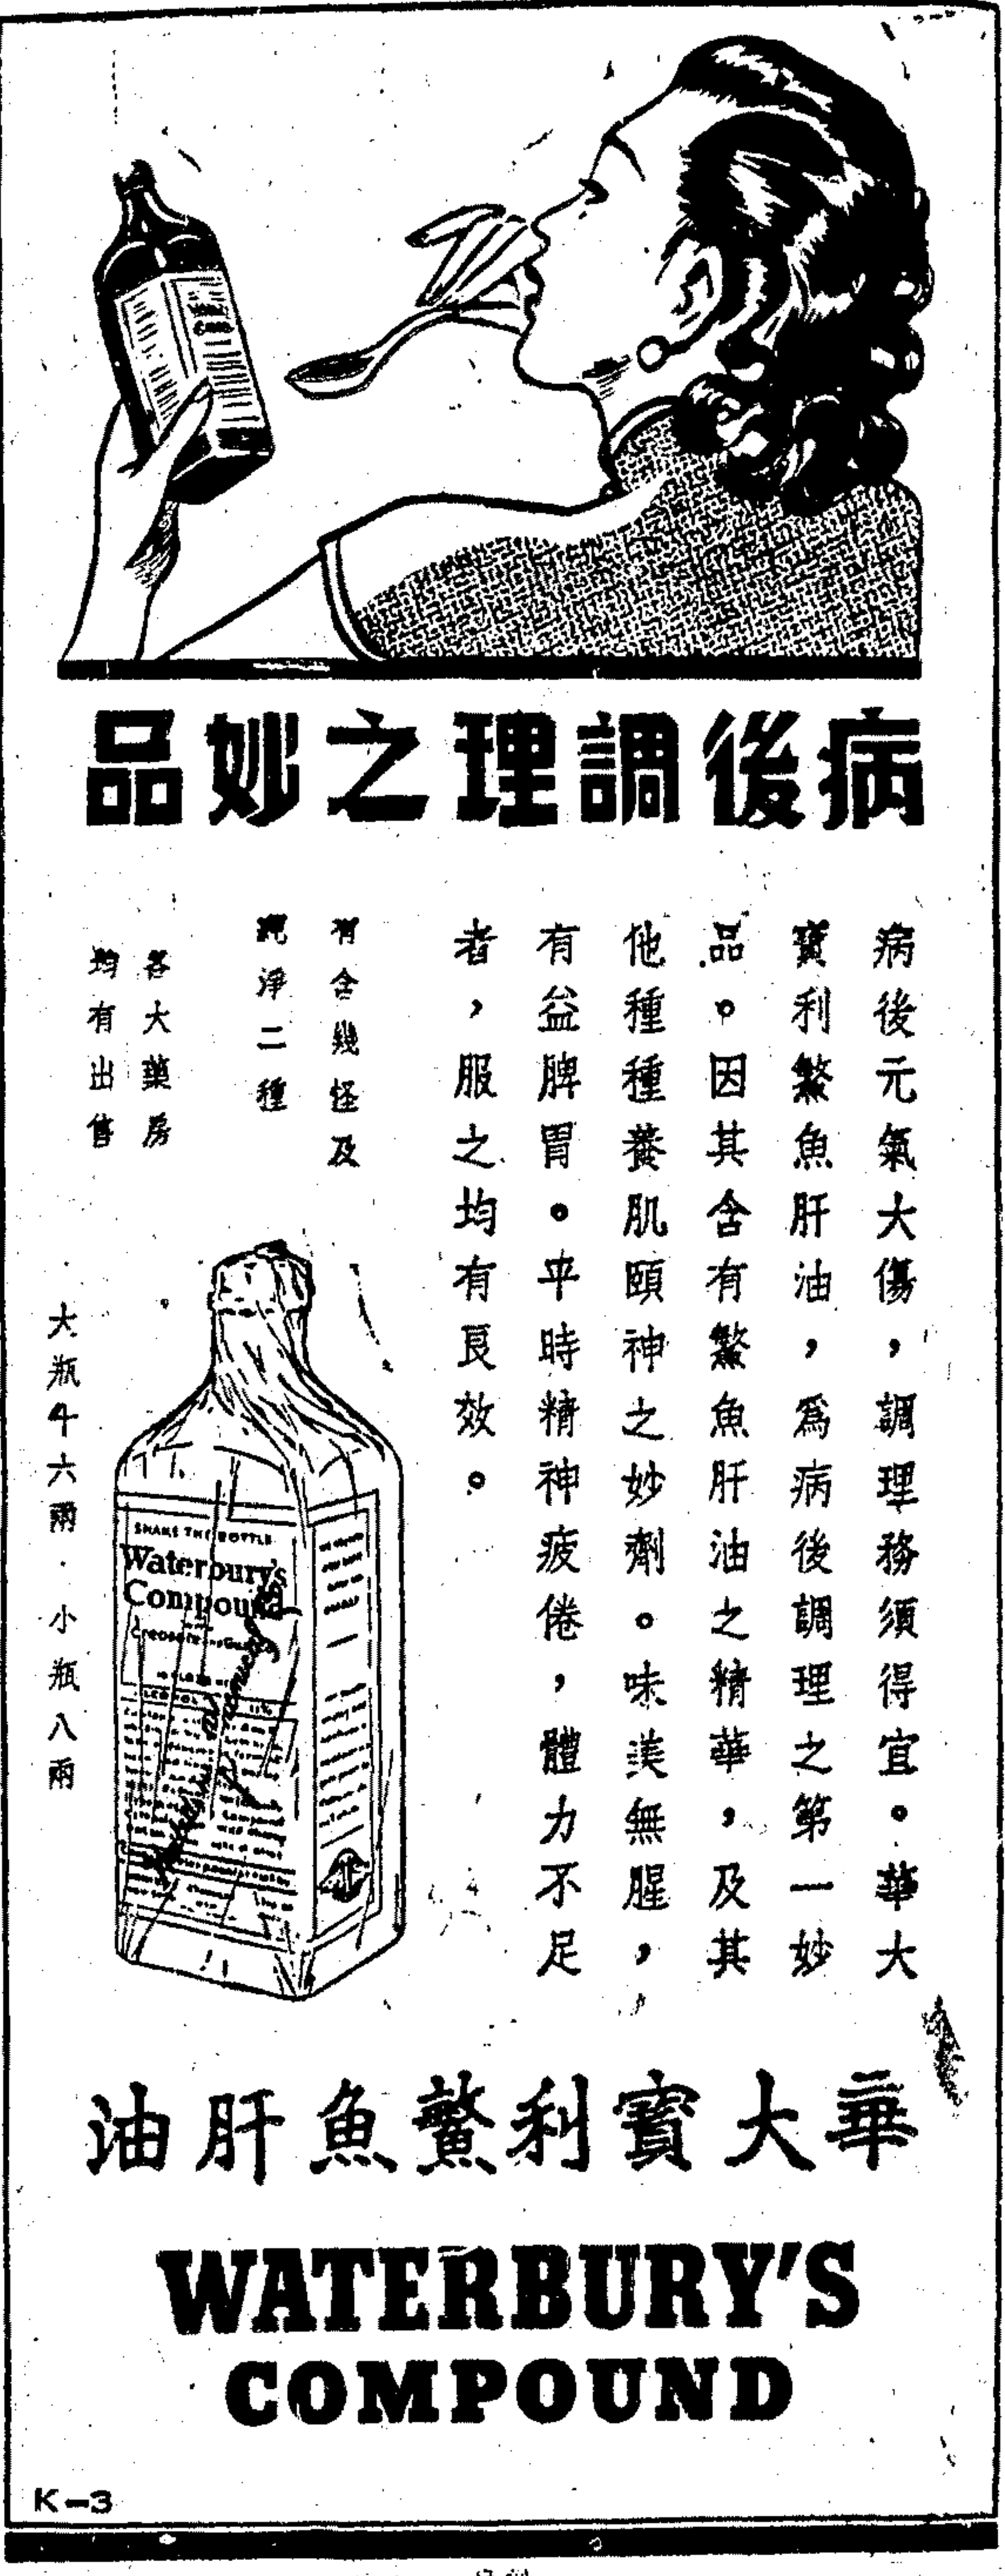 病後調理之妙品
病後元氣大傷，調理務須得宜。華大
寶利鰵魚肝油，爲病後調理之第一妙
品。因其含有鰵魚肝油之精華，及其
他種種養肌頤神之妙劑。味美無腥，
有益脾胃。平時精神疲倦，體力不足
者，服之均有良效。
有含幾怪及
純淨二種
各大藥房
均有出售
大瓶十六兩．小瓶八兩
SHAKE THE BOTTLE
Waterbury's
Compound
華大寶利鰵魚肝油
WATERBURY'S
COMPOUND
K-3